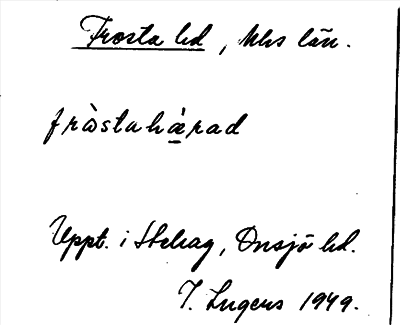 Frosta hd, Mhs län.
fròstahæ̀rad
Uppt. i Stehag, Onsjö hd.
I. Ingers 1949.